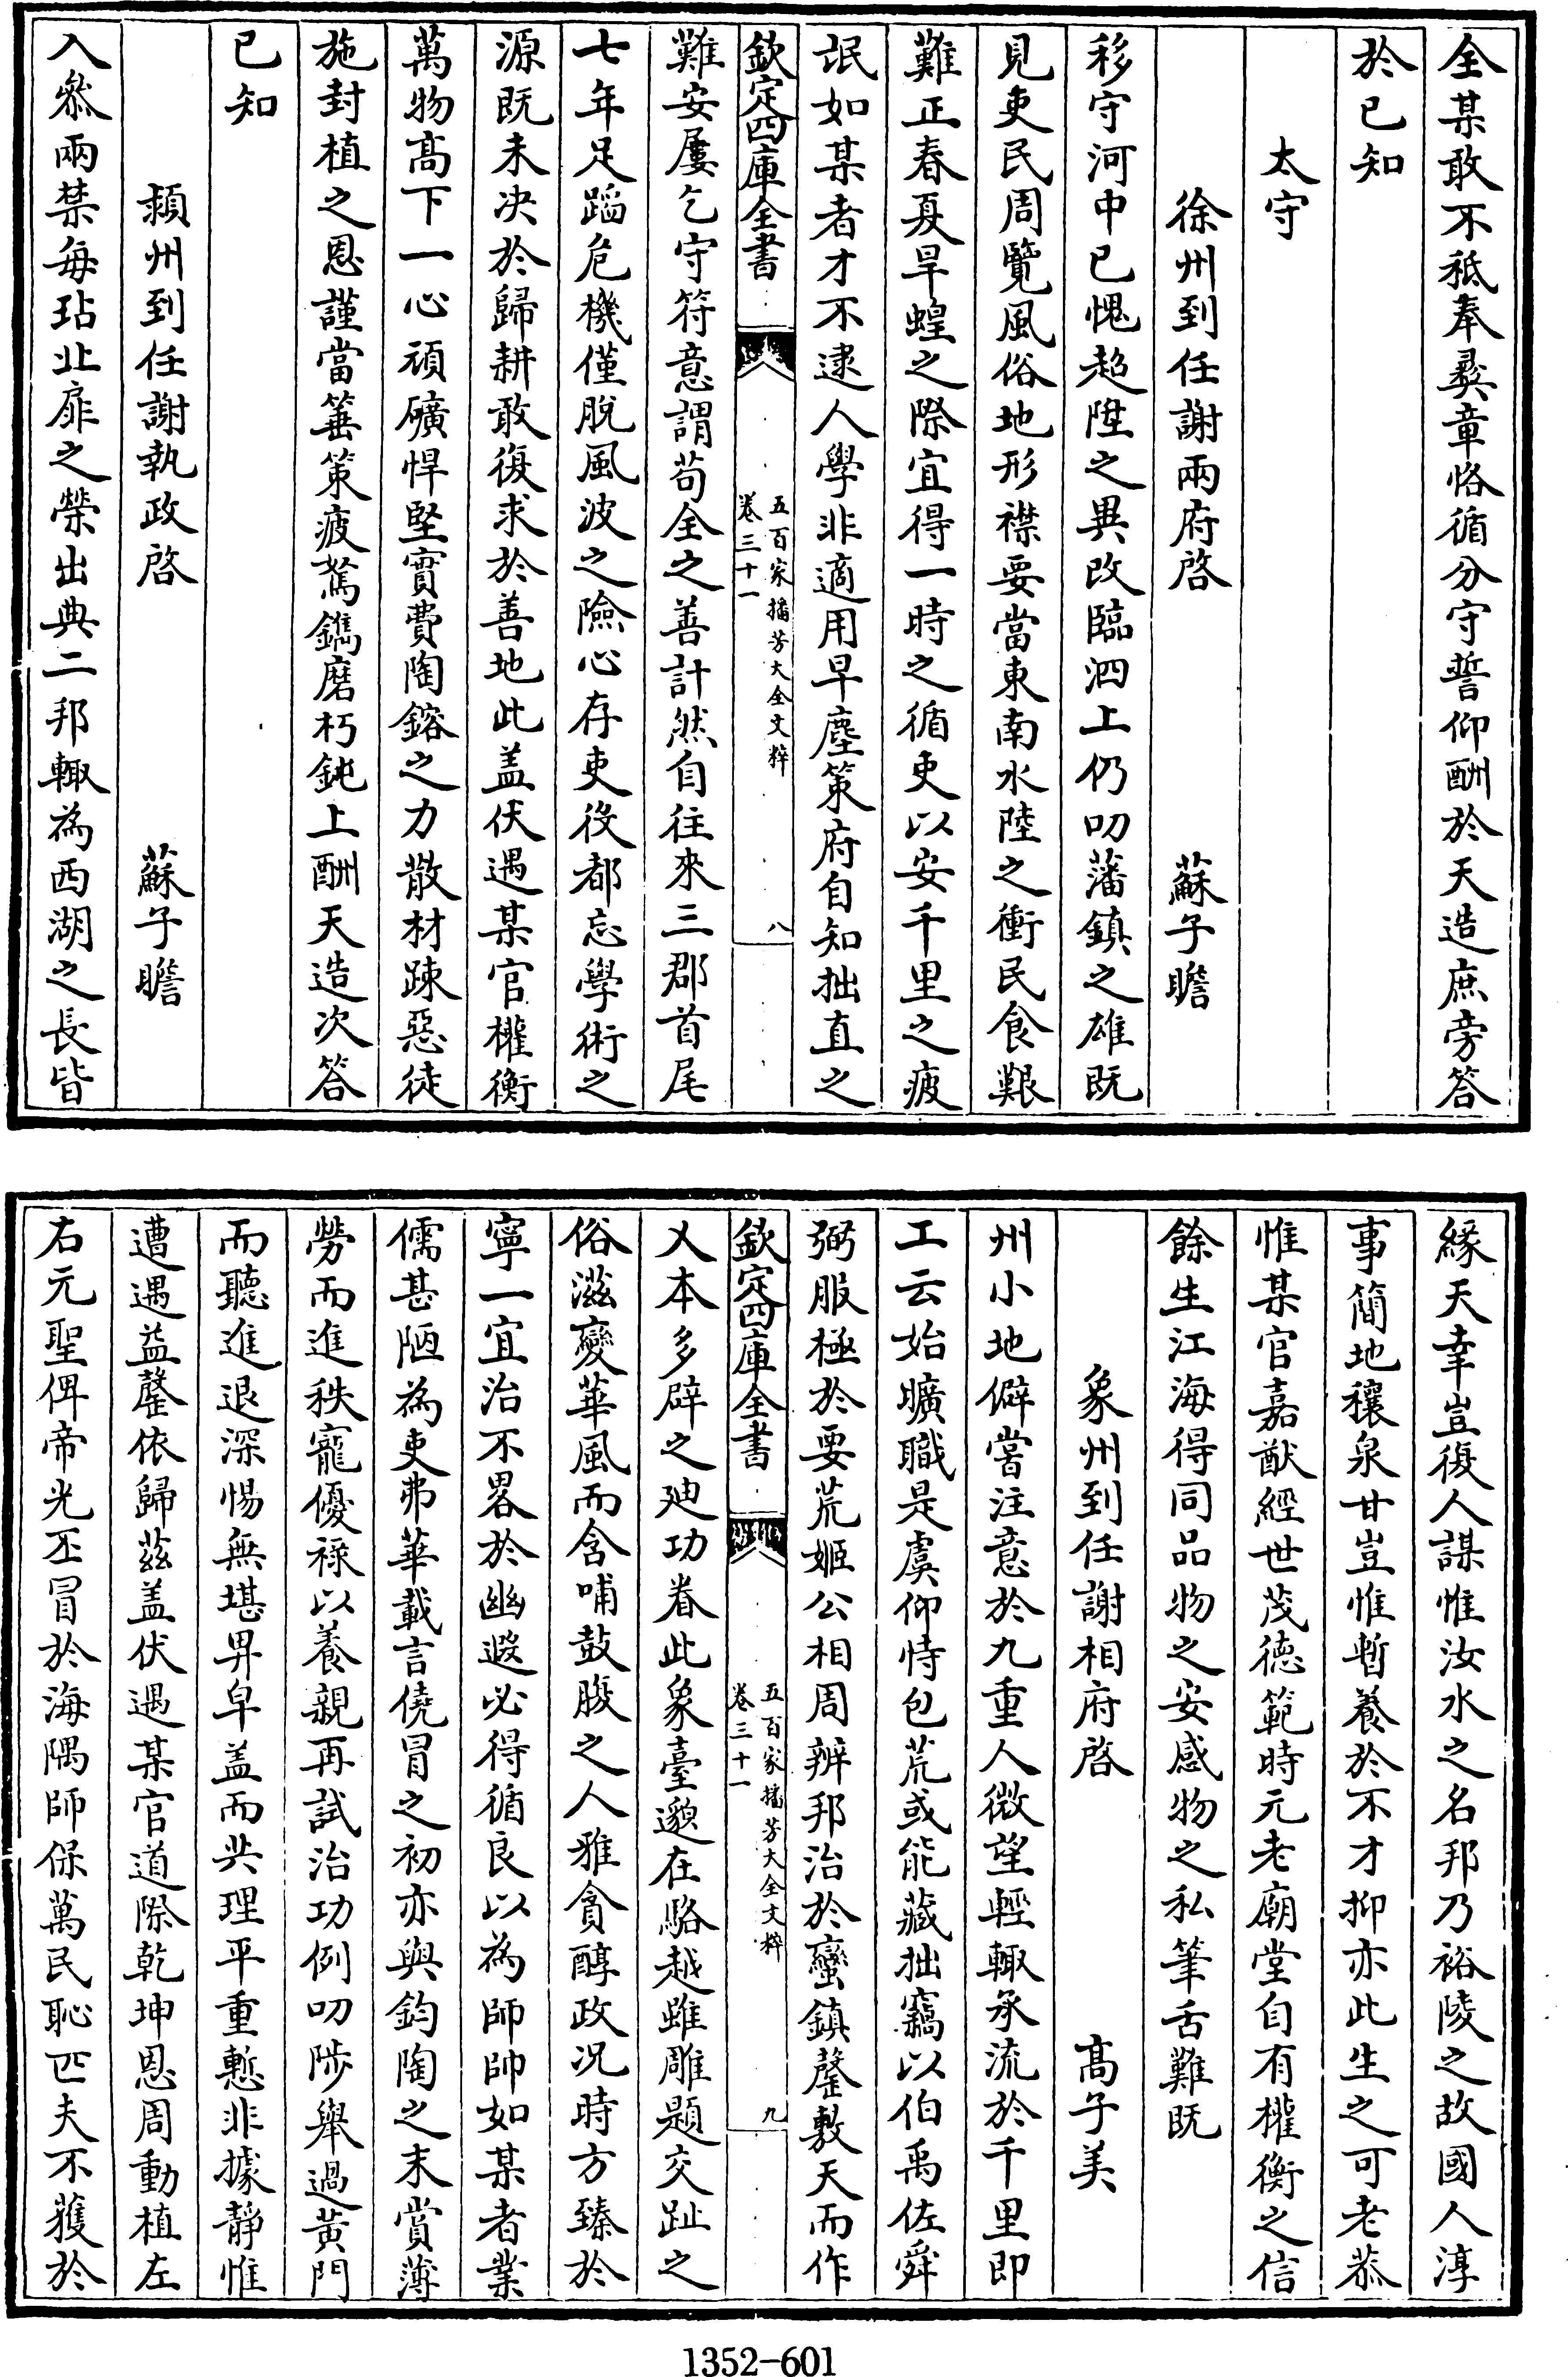 全某敢不秪奉彛章恪循分守誓仰酬於天造庶旁答
於已知
太守
徐州到任謝兩府啓　蘇子瞻
移守河中已愧超陞之異改臨泗上仍叨藩鎮之雄既
見吏民周覽風俗地形襟要當東南水陸之衝民食艱
難正春夏旱蝗之際宜得一時之循吏以安千里之疲
氓如某者才不逮人學非適用早塵策府自知拙直之
欽定四庫全書
五百家播芳大全文粹
卷三十一
八
難安屢乞守符意謂茍全之善計然自往來三郡首尾
七年足蹈危機僅脫風波之險心存吏役都忘學術之
源既未决於歸耕敢復求於善地此盖伏遇某官權衡
萬物髙下一心頑礦悍堅實費陶鎔之力散材踈惡徒
施封植之恩謹當箠策疲駑鐫磨朽鈍上酬天造次答
已知
頴州到任謝執政啓　蘇子瞻
入叅兩禁毎玷北扉之榮出典二邦輙為西湖之長皆
緣天幸豈復人謀惟汝水之名邦乃裕陵之故國人淳
事簡地穰泉甘豈惟暫養於不才抑亦此生之可老恭
惟某官嘉猷經世茂德範時元老廟堂自有權衡之信
餘生江海得同品物之安感物之私筆舌難既
象州到任謝相府啓　髙子美
州小地僻嘗注意於九重人微望輕輙承流於千里即
工云始曠職是虞仰恃包荒或能藏拙竊以伯禹佐舜
弼服極於要荒姬公相周辨邦治於蠻鎮罄敷天而作
欽定四庫全書
五百家播芳大全文粹
卷三十一
九
乂本多辟之廸功眷此象臺邈在駱越雖雕題交趾之
俗滋變華風而含哺鼓腹之人雅貪醇政况時方臻於
寧一宜治不畧於幽遐必得循良以為師帥如某者業
儒甚陋為吏弗華載言僥冒之初亦與鈞陶之末賞薄
勞而進秩寵優禄以養親再試治功例叨陟舉過黃門
而聽進退深惕無堪畀皁盖而共理平重慙非據靜惟
遭遇益罄依歸茲盖伏遇某官道際乾坤恩周動植左
右元聖俾帝光丕冒於海隅師保萬民恥匹夫不獲於
1352-601